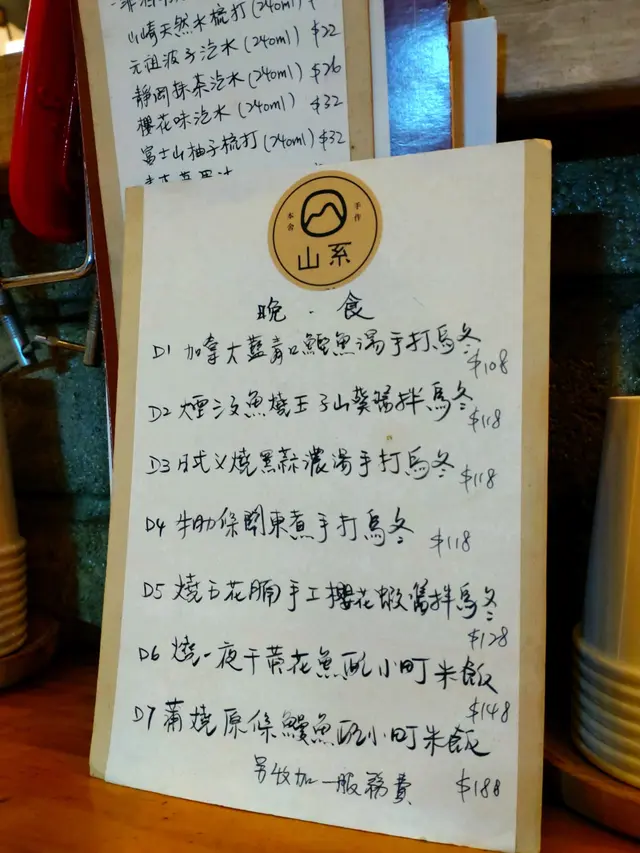 山崎天然水梳打(240ml) $22
元祖波子汽水(240ml) $26
靜岡抹茶汽水(240ml) $32
櫻花味汽水(240ml) $32
富士山柚子梳打(240ml)
本舍 手作
山系
晚·食
D1 加拿大藍青口鯤魚湯手打烏冬 $108
D2 煙三文魚燒玉子山葵醬拌烏冬 $118
D3 日式义燒黑蒜濃湯手打烏冬 $118
D4 牛肋條關東煮手打烏冬 $118
D5 燒五花腩手工櫻花蝦醬拌烏冬 $128
D6 燒一夜干黄花魚配小町米飯 $148
D7 蒲燒原條鰻魚配小町米飯 $188
另收加一服務費